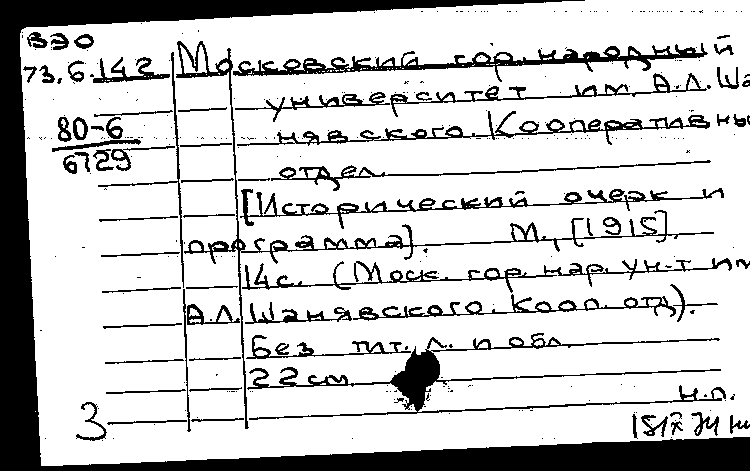 ВЭО
73.6.142 Московский гор. народный
университет им. А.Л.Ша
80-6
6729
нявского. Кооперативны
отдел.
[Исторический очерк и
программа]. М., [1915].
14 с. (Моск. гор. нар. ун-т им
А.Л.Шанявского. Кооп. отд).
Без тит. л. и обл.
22 см.
н.п.
3